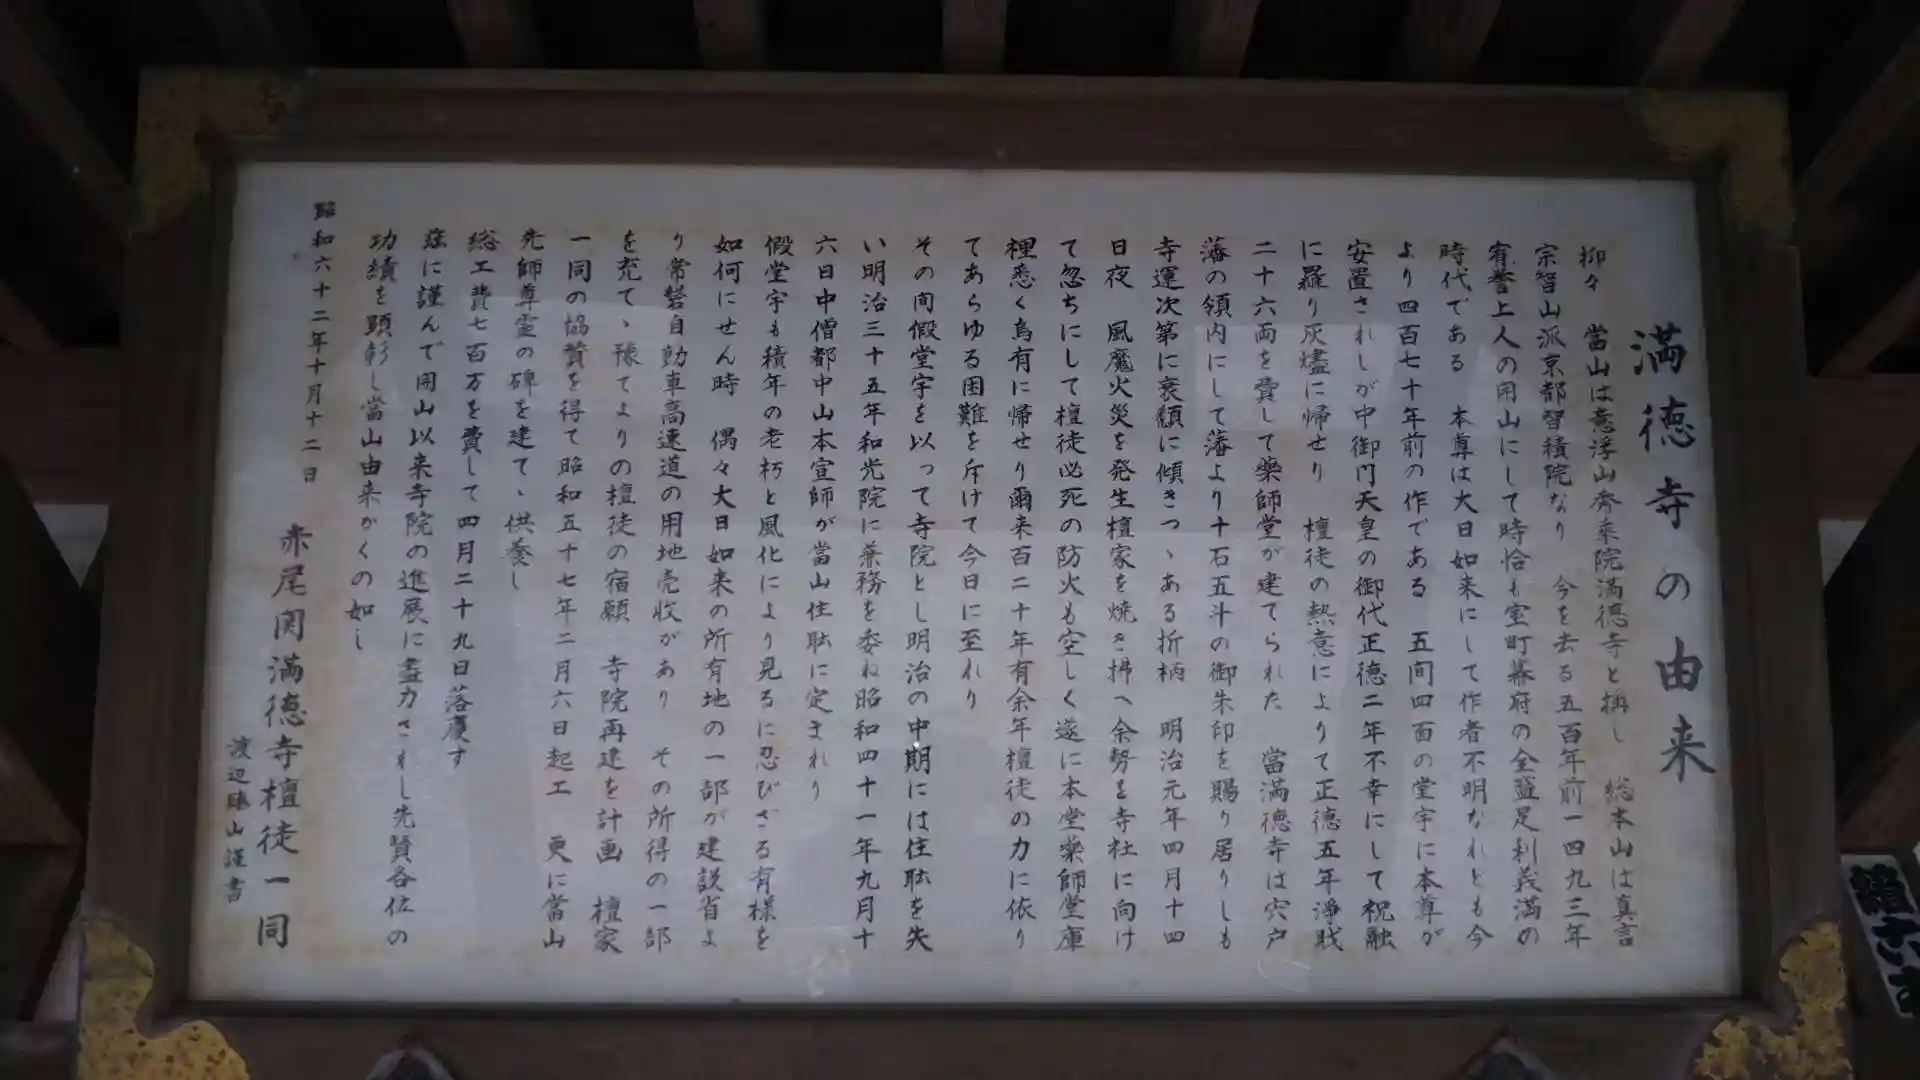 満徳寺の由来
柳々 當山は意浮山秀乘院満德寺と稱し 総本山は真言
宗智山派京都智積院なり 今を去る五百年前一四九三年
宥誉上人の開山にして時恰も室町幕府の全盛足利義満の
時代である 本尊は大日如来にして作者不明なれども今
より四百七十年前の作である 五间四面の堂宇に本尊が
安置されしが中御門天皇の御代正徳二年不幸にして祝融
に羅り灰燼に帰せり 檀徒の熱意によりて正徳五年淨戝
二十六両を費して藥師堂が建てられた 當満徳寺は穴戸
藩の領内にして藩より十石五斗の御朱印を賜り居りしも
寺運次第に衰頽に傾きつゝある折柄 明治元年四月十四
日夜 風魔火災を発生檀家を焼き拂へ余勢を寺社に向け
て忽ちにして檀徒必死の防火も空しく遂に本堂藥師堂庫
裡悉く烏有に帰せり爾来百二十年有余年檀徒の力に依り
てあらゆる困難を斥けて今日に至れり
その间假堂宇を以って寺院とし明治の中期には住耺を失
い明治三十五年和光院に兼務を委ね昭和四十一年九月十
六日中僧都中山本宣師が當山住耺に定まれり
假堂宇も積年の老朽と風化により見るに忍びざる有様を
如何にせん時 偶々大日如来の所有地の一部が建設省よ
り常磐自動車高速道の用地売收があり その所得の一部
を充てゝ豫てよりの檀徒の宿願 寺院再建を計画 檀家
一同の協賛を得て昭和五十七年二月六日起工 更に當山
先師尊霊の碑を建てゝ供養し
総工費七百万を費して四月二十九日落慶す
茲に謹んで開山以来寺院の進展に盡力されし先賢各位の
功績を顕彰し當山由来かくの如し
昭和六十二年十月十二日
赤尾関満徳寺檀徒一同
渡辺勝山謹書